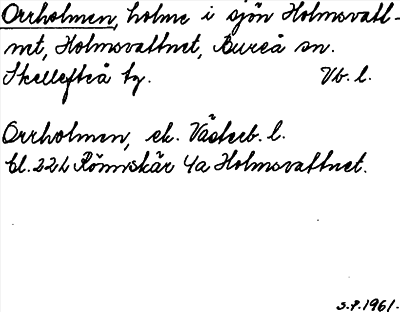 Orrholmen, holme i sjön Holmsvatt-
net, Holmsvattnet, Bureå sn.
Skellefteå tg. Vb. l.
Orrholmen, ek. Västerb. l.
bl. 22L Rönnskär 4a Holmsvattnet.
S.P. 1961.